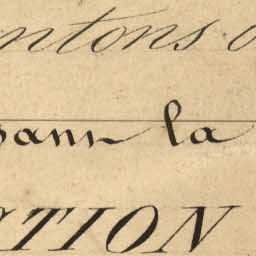 ntons d
dans la
CTION